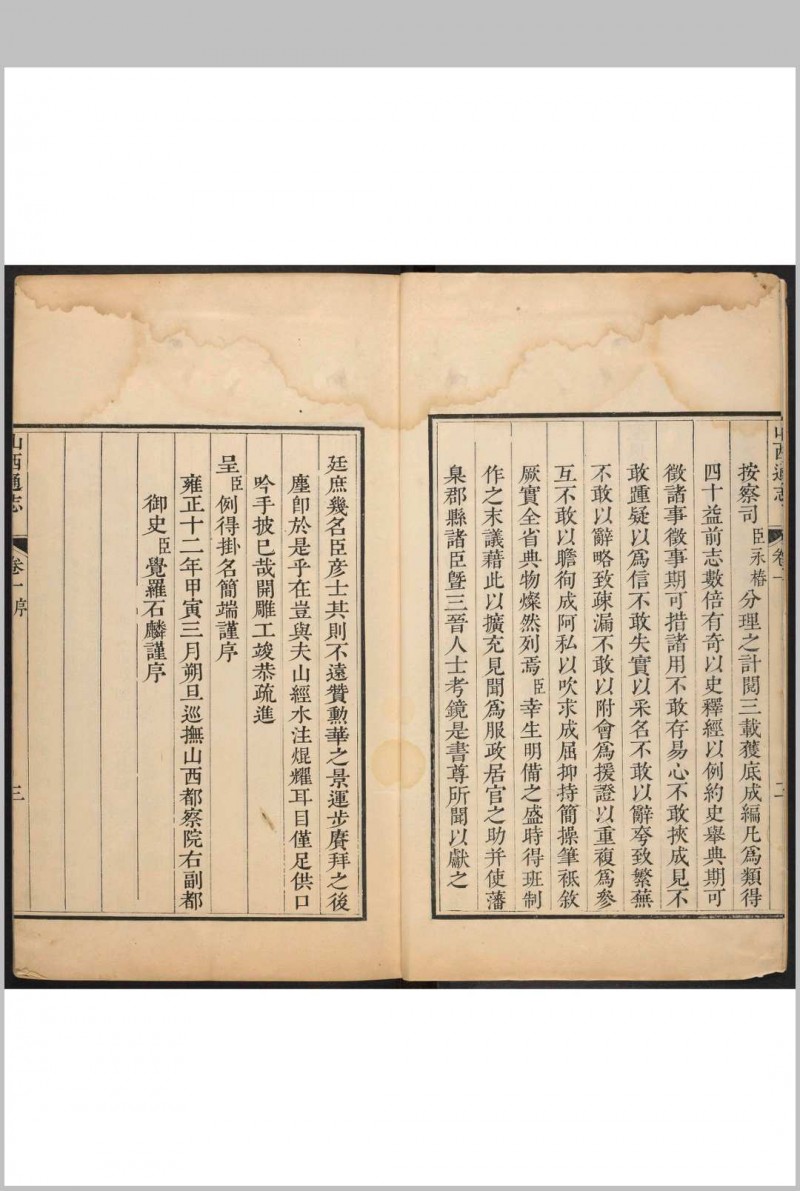 山西通志 卷一 二
按察司臣永椿分理之計閱三載獲底成編凡為類得
四十益前志數倍有奇以史釋經以例約史舉典期可
徵諸事徵事期可措諸用不敢存易心不敢挾成見不
敢踵疑以為信不敢失實以采名不敢以辭夸致繁蕪
不敢以辭略致疎漏不敢以附會為援證以重複為參
互不敢以瞻徇成阿私以吹求成屈抑持簡操筆祗敘
厥實全省典物燦然列焉臣幸生明備之盛時得班制
作之末議藉此以擴充見聞為服政居官之助并使藩
臬郡縣諸臣暨三晉人士考鏡是書尊所聞以獻之
廷庶幾名臣彥士其則不遠贊勳華之景運步賡拜之後
塵卽於是乎在豈與夫山經水注焜耀耳目僅足供口
吟手披已哉開雕工竣恭疏進
呈臣例得掛名簡端謹序
雍正十二年甲寅三月朔旦巡撫山西都察院右副都
御史臣覺羅石麟謹序
山西通志 卷一 序 三